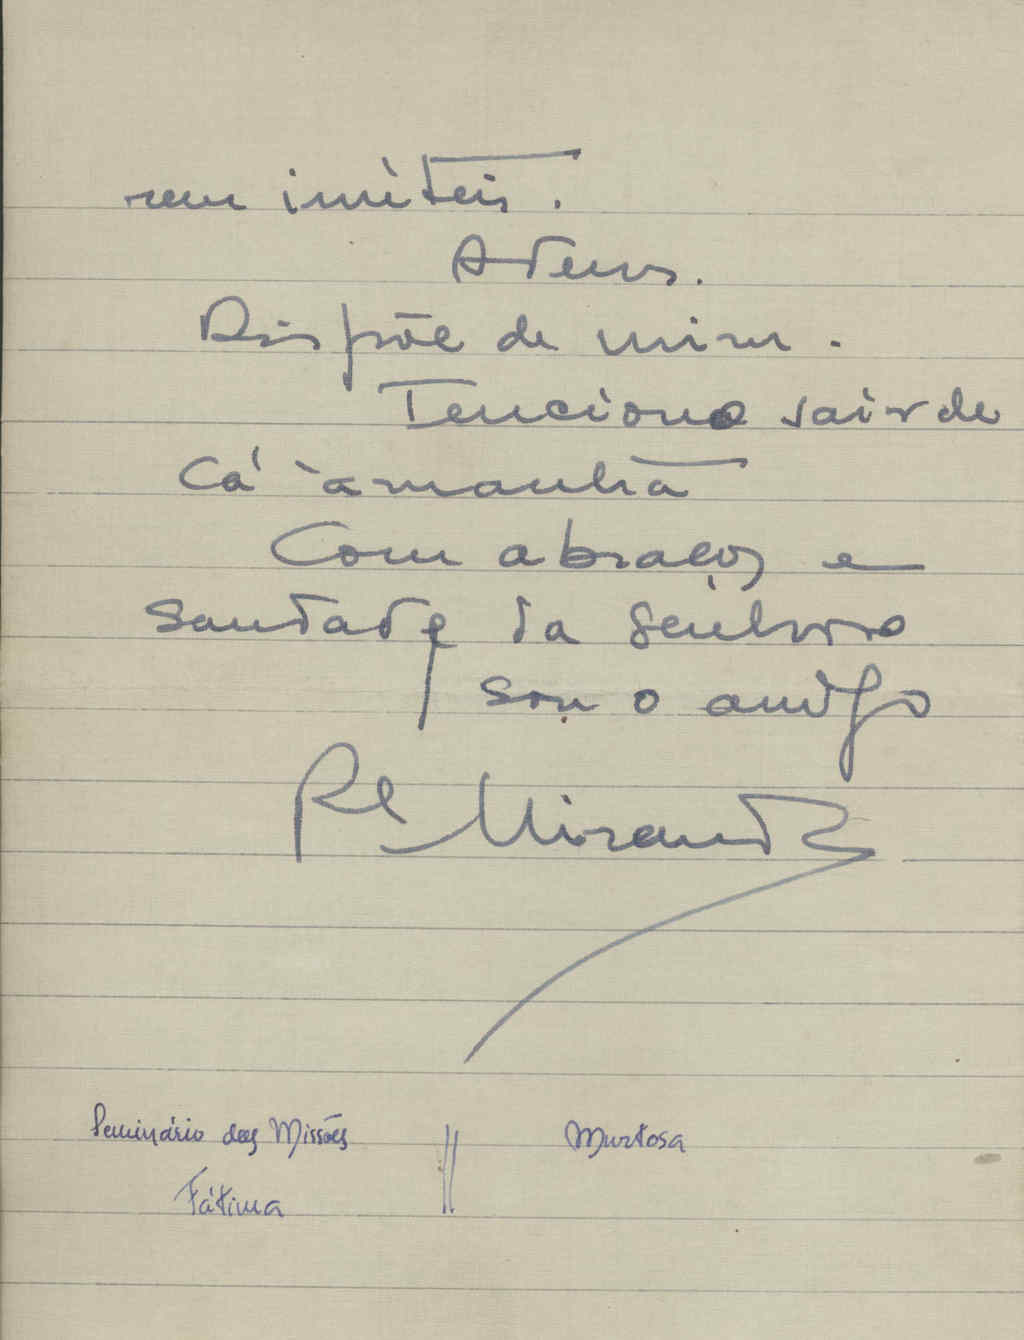 rem inúteis.
Adeus.
Dispõe de mim.
Tenciono sair de
cá àmanhã
Com abraços e
saudade da Senhora
sou o amigo
Pe Miranda
Seminário das Missões || Murtosa
Fátima